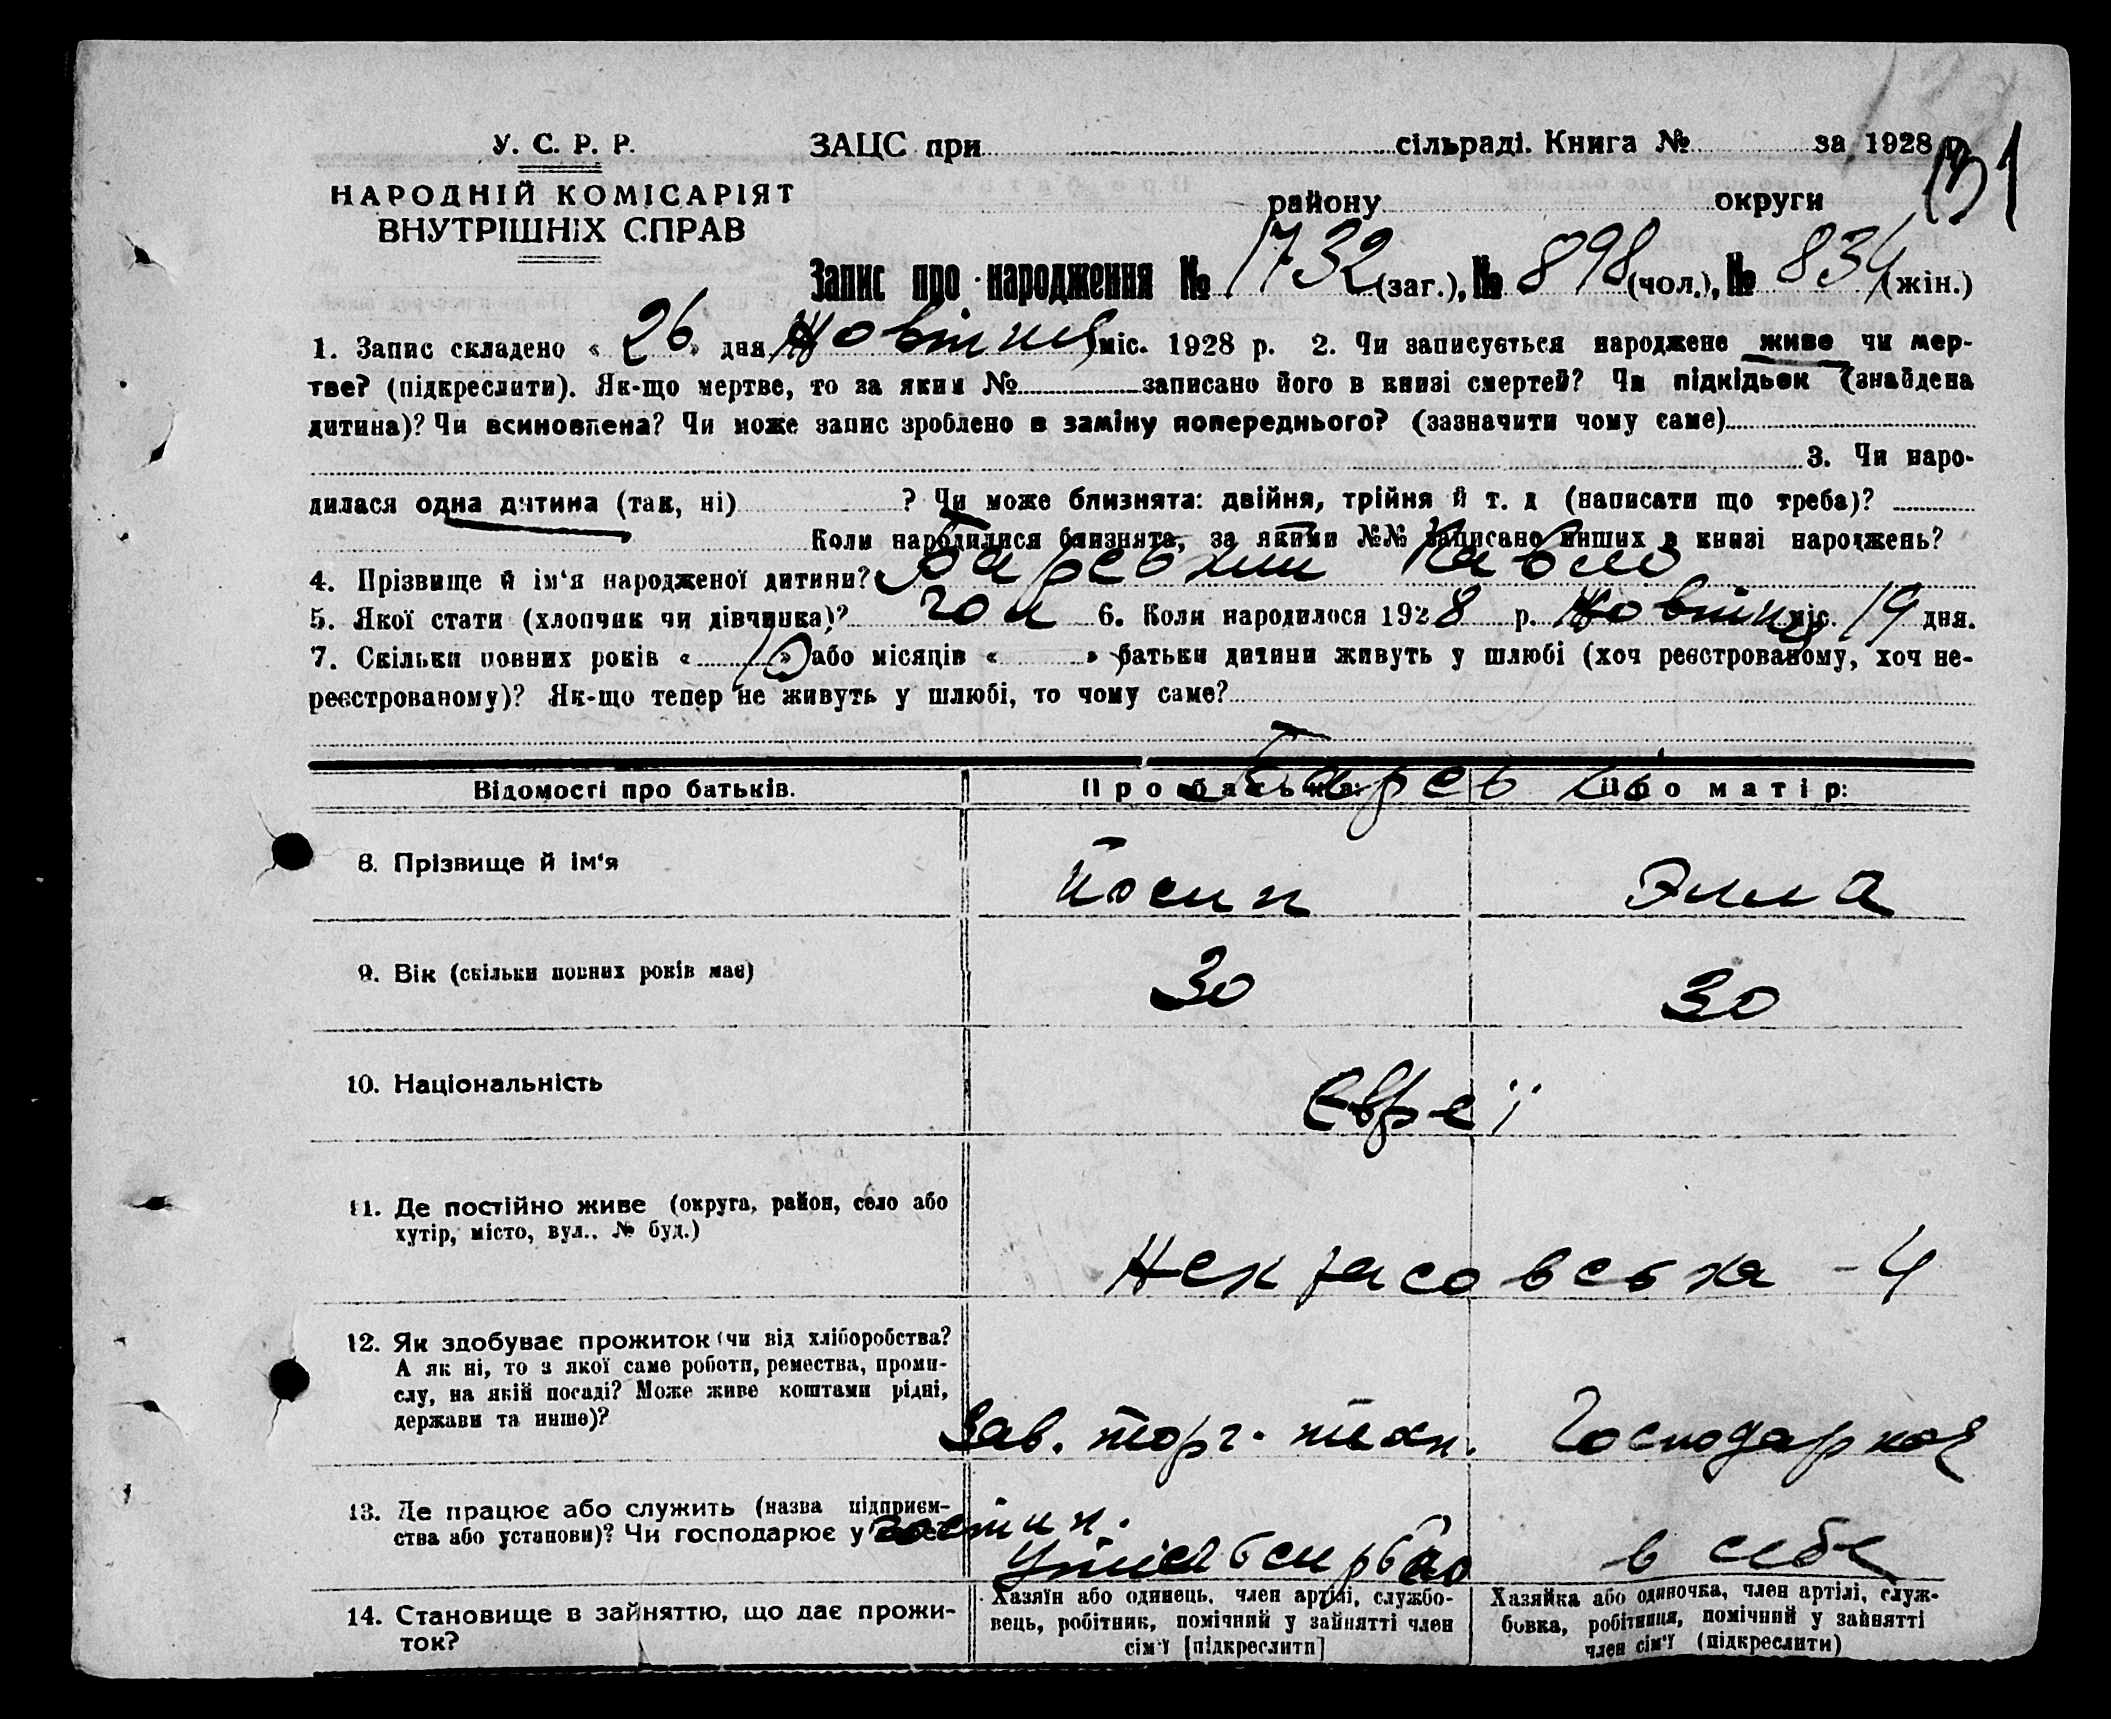 У. С. Р. Р.
НАРОДНІЙ КОМІСАРІЯТ
ВНУТРІШНІХ СПРАВ
ЗАЦС при сільраді. Книга № за 1928 р.
131
району округи
Запис про народження № 1732 (заг.), № 898 (чол.), № 834 (жін.)
1. Запис складено « 26 » дня Жовтня міс. 1928 р. 2. Чи записується народжене живе чи мер-
тве? (підкреслити). Як-що мертве, то за яким № записано його в книзі смертей? Чи підкідьок (знайдена
дитина)? Чи всиновлена? Чи може запис зроблено в заміну попереднього? (зазначити чому саме)
3. Чи наро-
дилася одна дитина (так, ні) ? Чи може близнята: двійня, трійня й т. д (написати що треба)?
Коли народилися близнята, за якими №№ записано инших в книзі народжень?
4. Прізвище й ім'я народженої дитини?
5. Якої стати (хлопчик чи дівчинка)? чол 6. Коли народилося 1928 р. Жовтня міс. 19 дня.
7. Скільки повних років « 10 » або місяців « » батьки дитини живуть у шлюбі (хоч реєстрованому, хоч не-
реєстрованому)? Як-що тепер не живуть у шлюбі, то чому саме?
Відомості про батьків. Про батька: Про матір:
8. Прізвище й ім'я Йосип
9. Вік (скільки повних років має) 30 30
10. Національність Євреї
11. Де постійно живе (округа, район, село або
хутір, місто, вул.. № буд.)
Некрасовська - 4
12. Як здобуває прожиток (чи від хліборобства?
А як ні, то з якої саме роботи, ремества, проми-
слу, на якій посаді? Може живе коштами рідні,
держави та инше)?
Зав. торг. Господаркоя
13. Де працює або служить (назва підприєм-
ства або установи)? Чи господарює у себе
в себе
14. Становище в зайняттю, що дає прожи-
ток?
Хазяїн або одинець, член артілі, службо-
вець, робітник, помічний у зайнятті член
сім'ї [підкреслити]
Хазяйка або одиночка, член артілі, служ-
бовка, робітниця, помічний у зайнятті
член сім'ї (підкреслити)